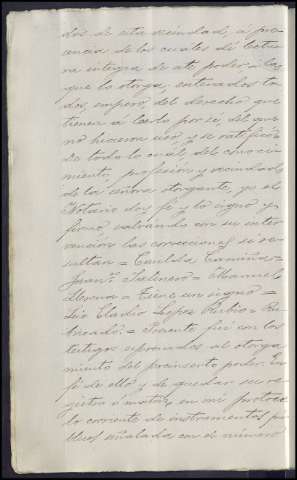 dos de esta vecindad, á pre-
sencia de los cuales dí lectu-
ra integra de este poder á los
que lo otorga, enterados to-
dos, empero, del derecho que
tienen á leerlo por sí, del que
no hicieron uso, y se ratificó
de todo lo cual, del conoci-
miento, profesión y vecindad
de la señora otorgante, yo el
Notario doy fé y lo signo y
firmo salvando con su inter-
vención las correcciones que re-
sultan = Cándida =
Juan Salinero = Manuel
Llorena = Tiene un signo =
Ldo Eladio Lopez Rubio = Ru-
bricado. = Presente fuí con los
testigos espresados al otorga-
miento del preinserto poder. En
fé de ello y de quedar su re-
gistro ó matriz en mi protoco-
lo corriente de instrumentos pú-
blicos señalada con el número